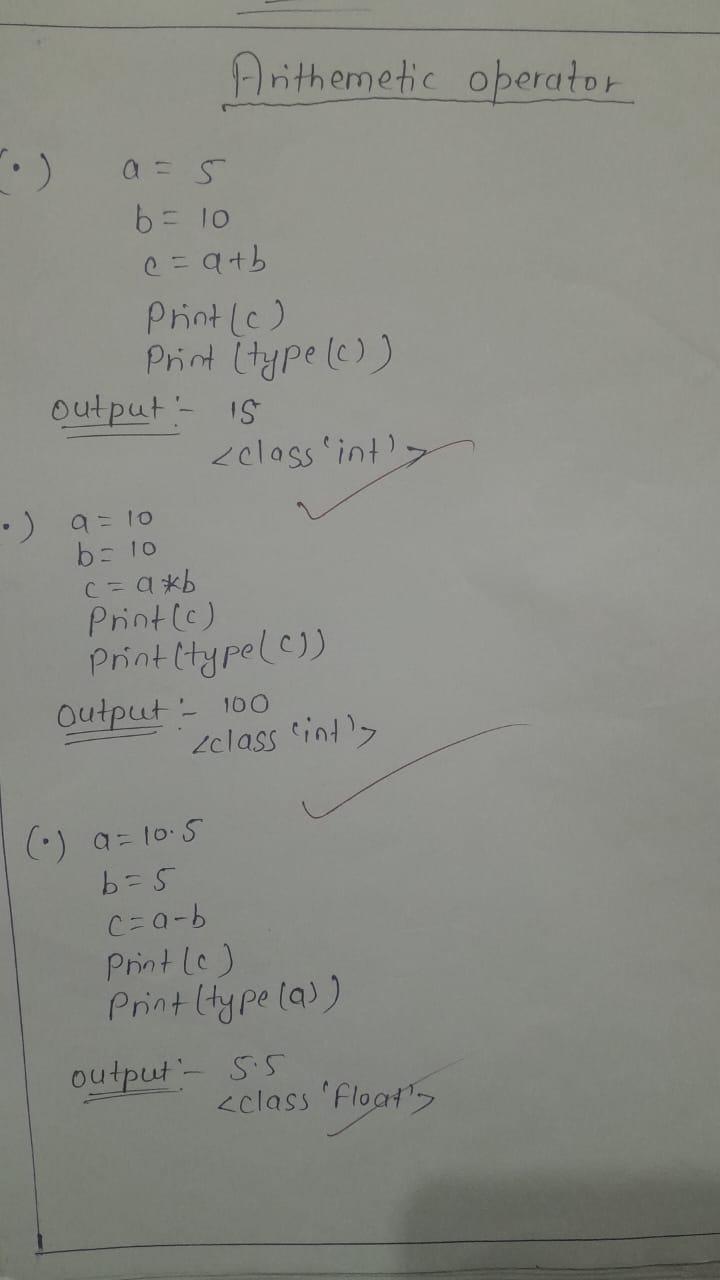 Arithemetic operator
(•) a = 5
b = 10
c = a+b
Print(c)
Print (type(c))
output:- 15
<class 'int'>
•) a = 10
b = 10
c = a*b
Print(c)
Print(type(c))
Output:- 100
<class 'int'>
(•) a = 10.5
b = 5
c = a-b
Print(c)
Print(type(a))
output:- 5.5
<class 'Float'>